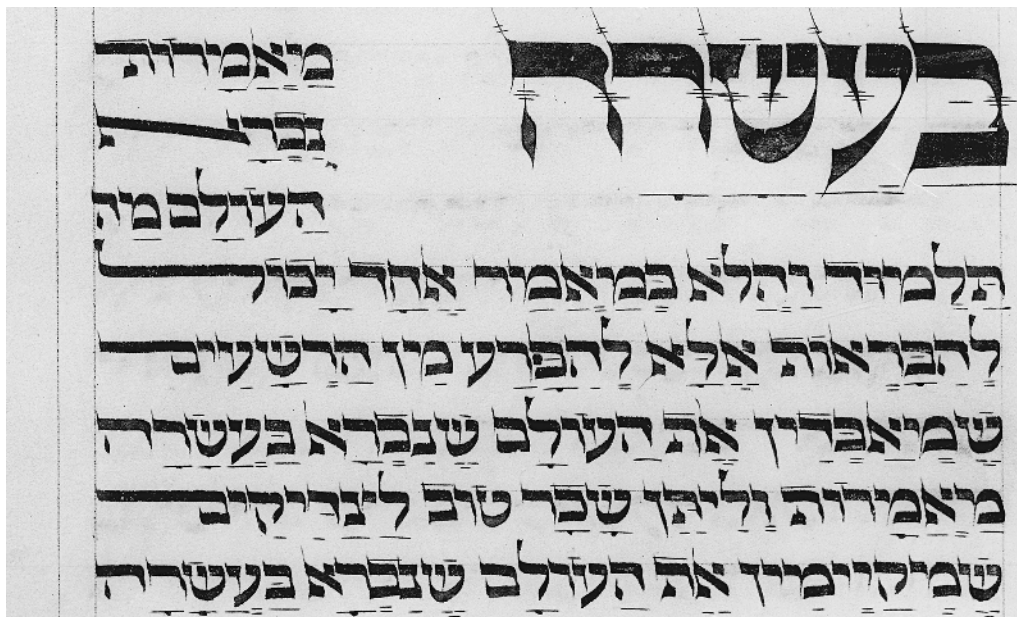 בעשרה מאמרות
נברא
העולם מה
תלמוד והלא במאמר אחד יכול
להבראות אלא להפרע מן הרשעים
שמאבדין את העולם שנברא בעשרה
מאמרות וליתן שכר טוב לצדיקים
שמקיימין את העולם שנברא בעשרה